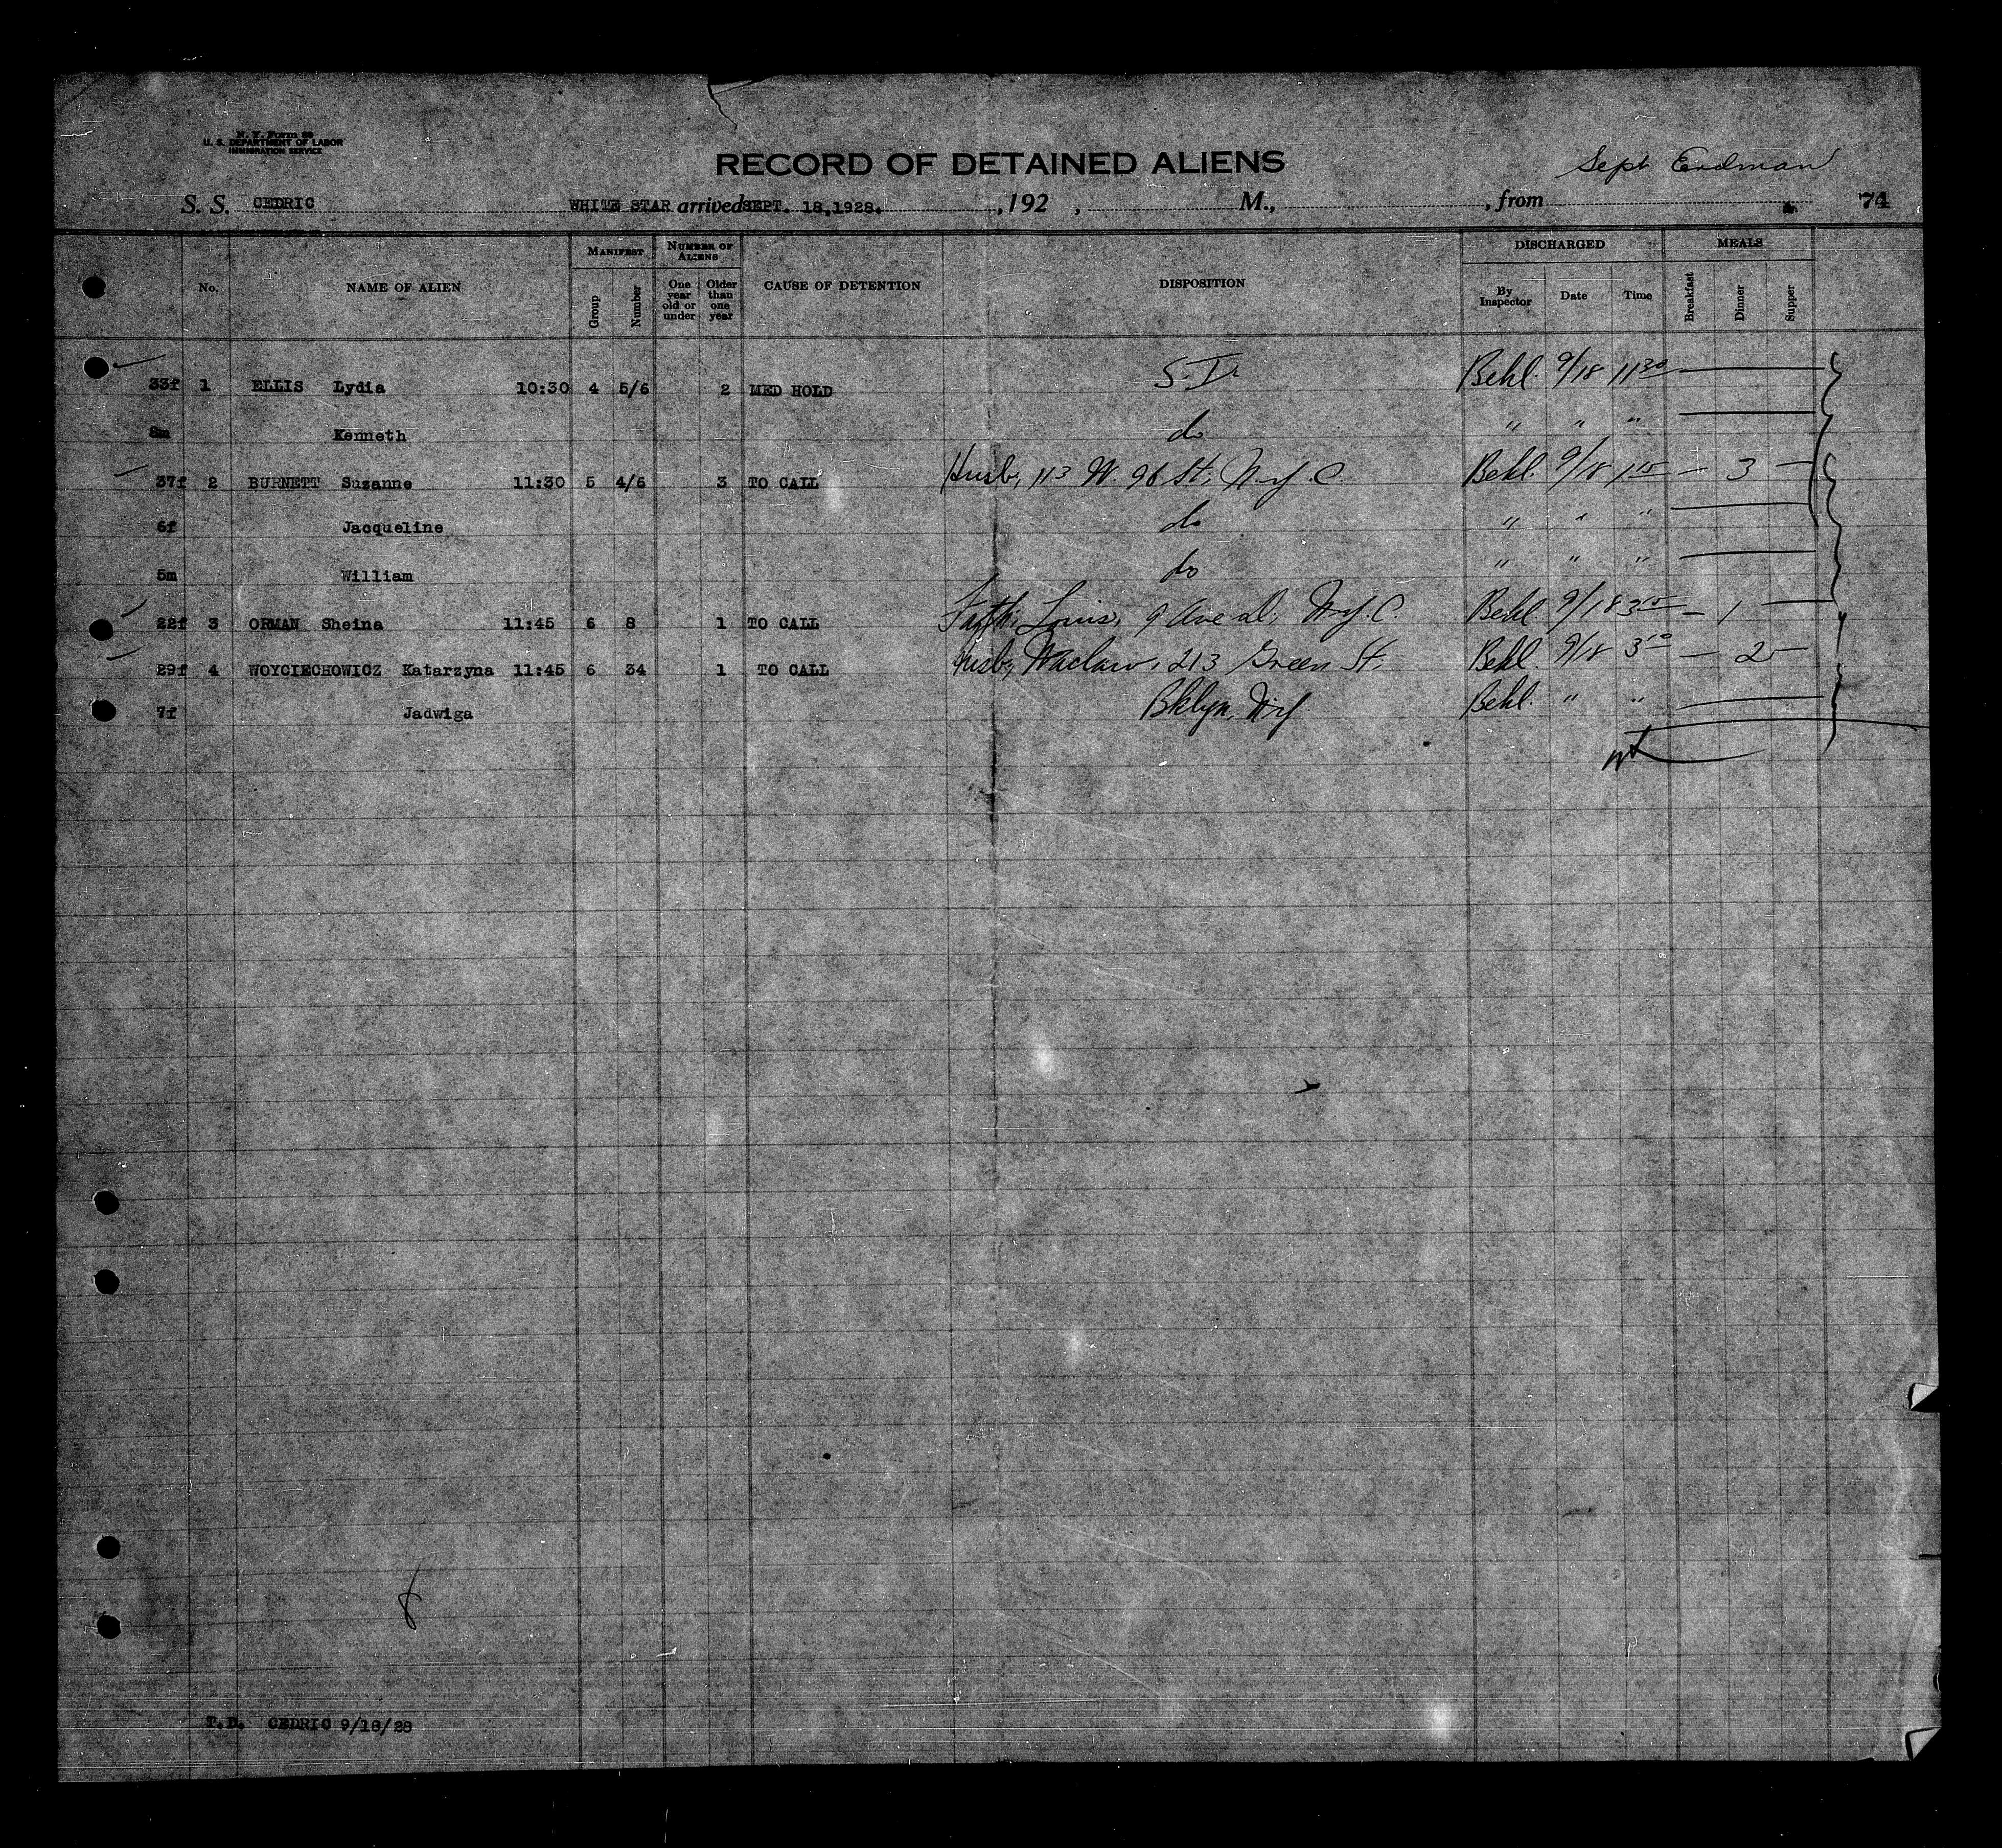 N. Y. Form 89
U. S. DEPARTMENT OF LABOR
IMMIGRATION SERVICE
RECORD OF DETAINED ALIENS
Sept Erdman
S. S. CEDRIC WHITE STAR arrived SEPT. 18,1928. , 192 , M., , from 74
No. NAME OF ALIEN MANIFEST Group Number NUMBER OF ALIENS One year old or under Older than one year CAUSE OF DETENTION DISPOSITION DISCHARGED By Inspector Date Time MEALS Breakfast Dinner Supper
33f 1 ELLIS Lydia 10:30 4 5/6 2 MED HOLD S.I. Behl. 9/18 11 30
8m Kenneth do " " "
37f 2 BURNETT Suzanne 11:30 5 4/6 3 TO CALL Husb, 113 W. 96 St, N.Y.C. Behl. 9/18 1 15 — 3 —
6f Jacqueline do " " "
5m William do " " "
22f 3 ORMAN Sheina 11:45 6 8 1 TO CALL Fath, Louis, 9 Ave D, N.Y.C. Behl. 9/18 3 15 — 1 —
29f 4 WOYCIECHOWICZ Katarzyna 11:45 6 34 1 TO CALL Husb, Waclaw, 213 Green St, Behl. 9/18 3 10 — 2 —
7f Jadwiga Bklyn, N.Y. Behl. " "
8
T.D. CEDRIC 9/18/28